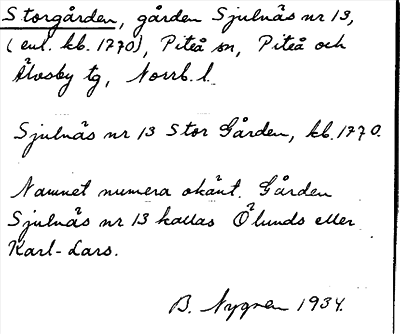 Storgården, gården Sjulnäs nr 13,
(enl. kb. 1770), Piteå sn, Piteå och
Älvsby tg, Norrb. l.
Sjulnäs nr 13 Stor Gården, kb. 1770.
Namnet numera okänt. Gården
Sjulnäs nr 13 kallas Ölunds eller
Karl-Lars.
B. Nygren 1934.